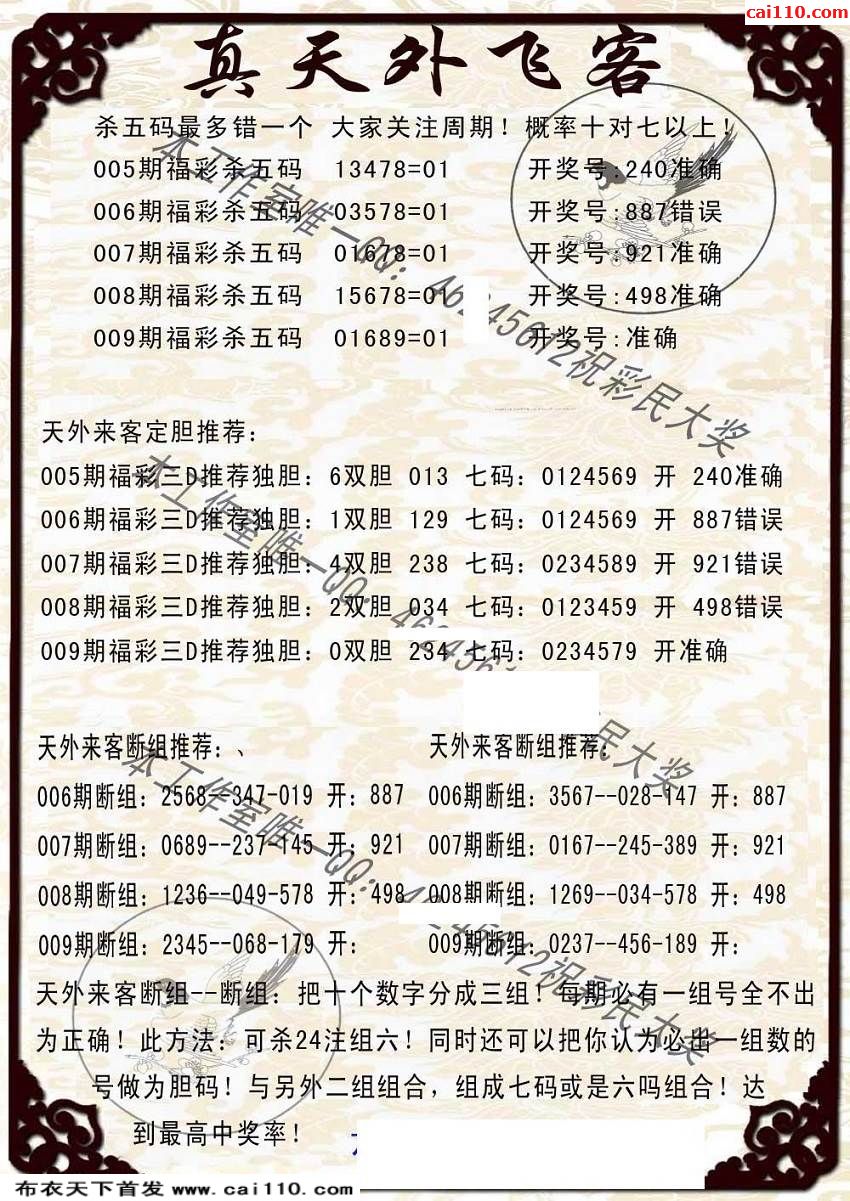 cai110.com
真天外飞客
杀五码最多错一个 大家关注周期！概率十对七以上！
005期福彩杀五码 13478=01 开奖号:240准确
006期福彩杀五码 03578=01 开奖号:887错误
007期福彩杀五码 01678=01 开奖号:921准确
008期福彩杀五码 15678=01 开奖号:498准确
009期福彩杀五码 01689=01 开奖号:准确
天外来客定胆推荐：
005期福彩三D推荐独胆：6双胆 013 七码：0124569 开 240准确
006期福彩三D推荐独胆：1双胆 129 七码：0124569 开 887错误
007期福彩三D推荐独胆：4双胆 238 七码：0234589 开 921错误
008期福彩三D推荐独胆：2双胆 034 七码：0123459 开 498错误
009期福彩三D推荐独胆：0双胆 234 七码：0234579 开准确
天外来客断组推荐：、 天外来客断组推荐：
006期断组：2568--347-019 开：887 006期断组：3567--028-147 开：887
007期断组：0689--237-145 开：921 007期断组：0167--245-389 开：921
008期断组：1236--049-578 开：498 008期断组：1269--034-578 开：498
009期断组：2345--068-179 开： 009期断组：0237--456-189 开：
天外来客断组--断组：把十个数字分成三组！每期必有一组号全不出
为正确！此方法：可杀24注组六！同时还可以把你认为必出一组数的
号做为胆码！与另外二组组合，组成七码或是六吗组合！达
到最高中奖率！
本工作室唯一QQ：
祝彩民大奖
本工作室唯一QQ：
民大奖
本工作室唯一QQ：
祝彩民大奖
布衣天下首发 www.cai110.com